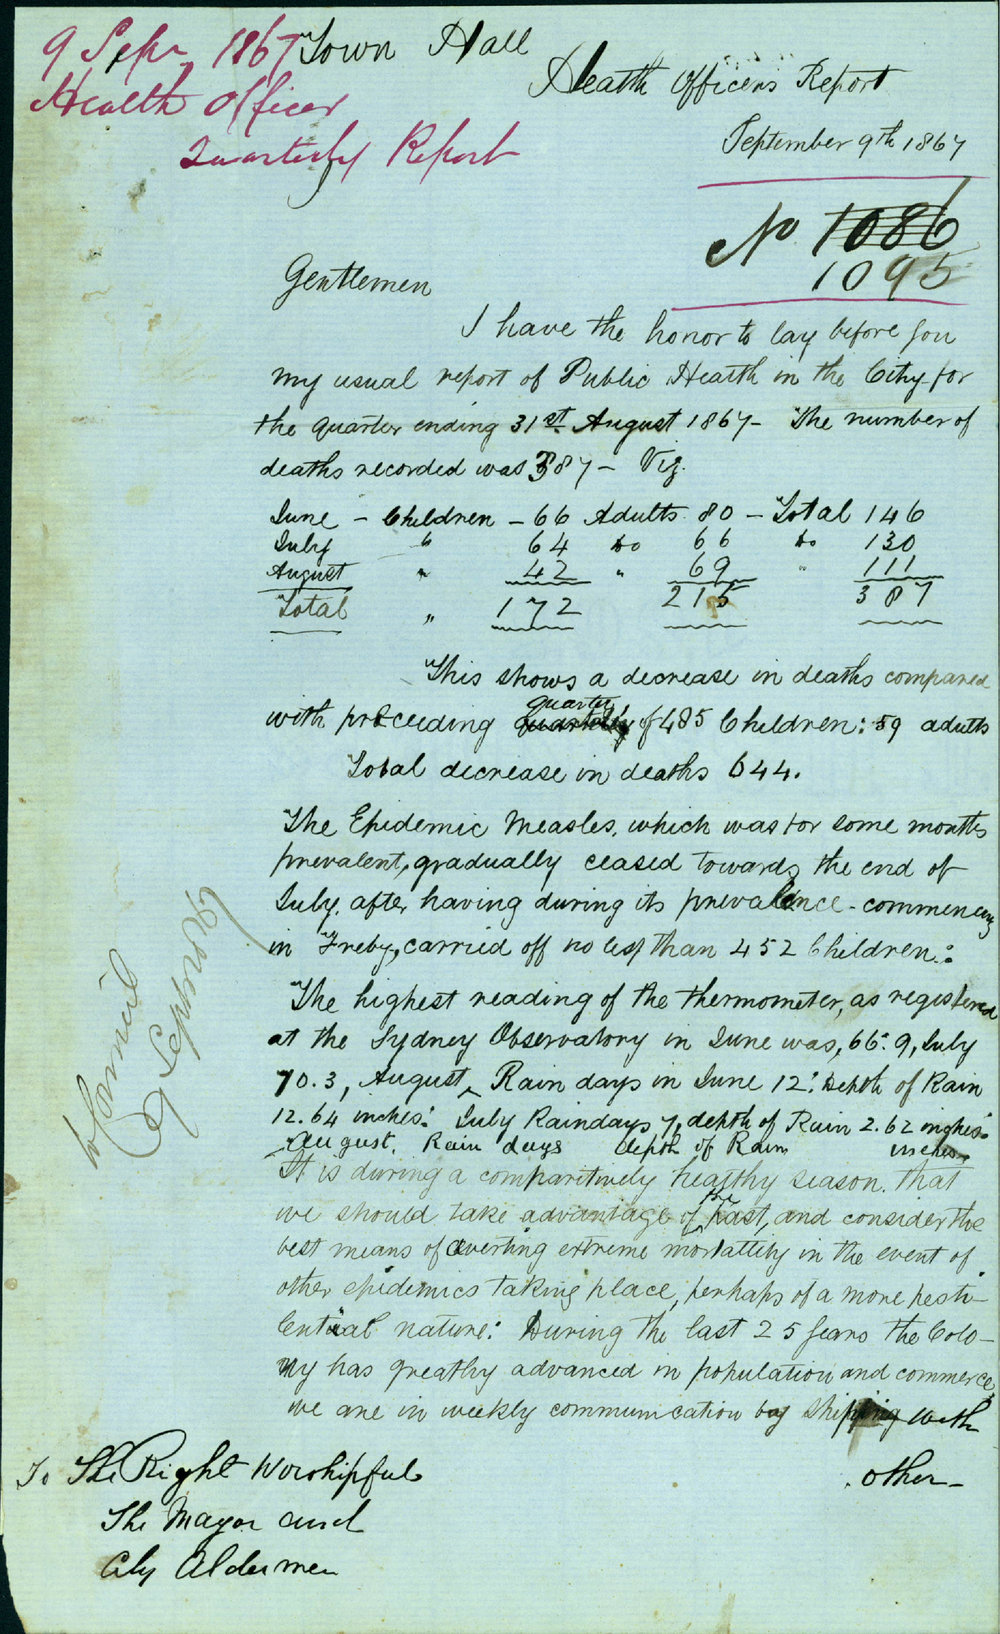 9 Sepr 1867
Health Officer
Quarterly Report
Town Hall
Health Officers Report
September 9th 1867
No 1086
1095
Gentlemen
I have the honor to lay before you
my usual report of Public Health in the City for
the quarter ending 31st August 1867 - The number of
deaths recorded was 387 - Viz.
June - Children - 66 Adults 80 - Total 146
July " 64 do 66 do 130
August " 42 " 69 " 111
Total " 172 215 387
This shows a decrease in deaths compared
with preceeding quarter of 485 Children: 59 adults
Total decrease in deaths 644.
The Epidemic Measles, which was for some months
prevalent, gradually ceased towards the end of
July, after having during its prevalence - commencing
in Freby, carried off no less than 452 Children:
The highest reading of the thermometer, as registered
at the Sydney Observatory in June was, 66.9, July
70.3, August, Rain days in June 12: Depth of Rain
12.64 inches: July Raindays 7, depth of Rain 2.62 inches:
August. Rain days depth of Rain inches.
It is during a comparitively healthy season. that
we should take advantage of the past, and consider the
best means of averting extreme mortallity in the event of
other epidemics taking place, perhaps of a more pesti-
lential nature: During the last 25 years the Colo-
ny has greatly advanced in population and commerce,
we are in weekly communication by shipping with
other -
To The Right Worshipful
The Mayor and
City Aldermen
Council
9 Sepr 1867